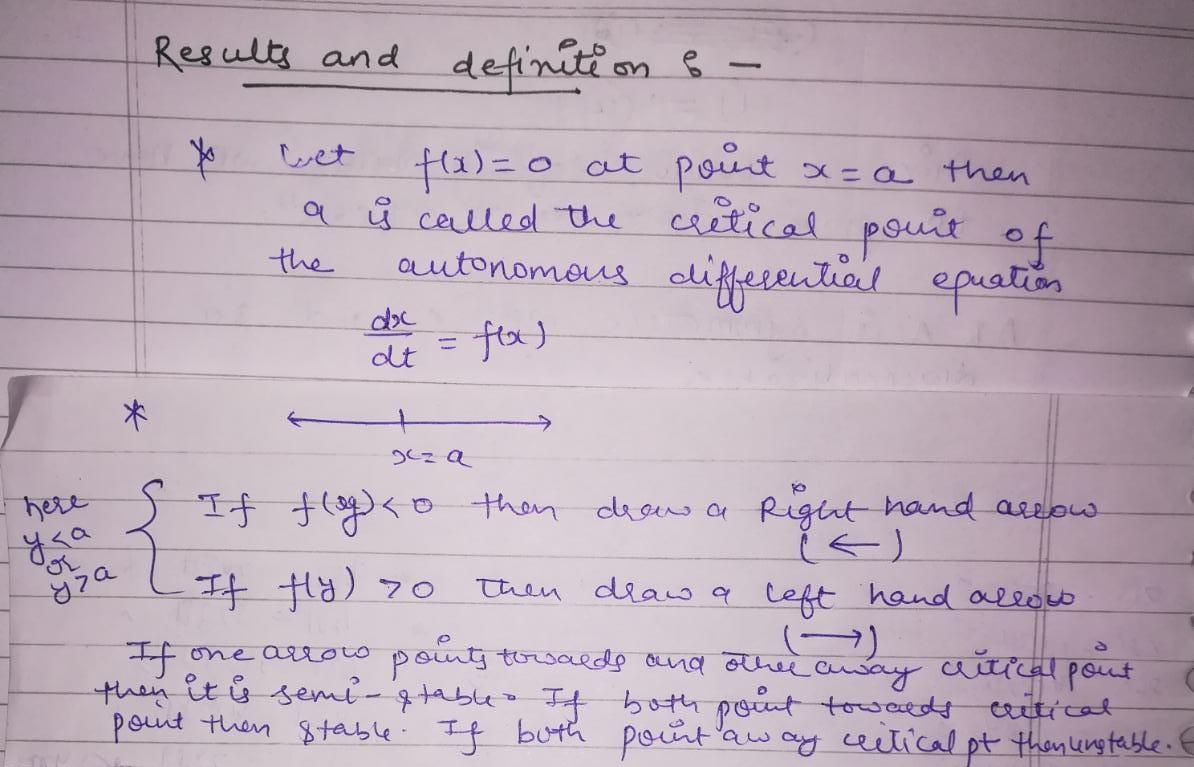 Results and definition :-
* Let f(x)=0 at point x=a then
a is called the critical point of
the autonomous differential equation
dx/dt = f(x)
*
x=a
here y<a or y>a { If f(y)<0 then draw a Right hand arrow
(←)
If f(y) >0 then draw a left hand arrow
(→)
If one arrow points towards and other away critical point
then it is semi-stable. If both point towards critical
point then stable. If both point away critical pt then unstable.